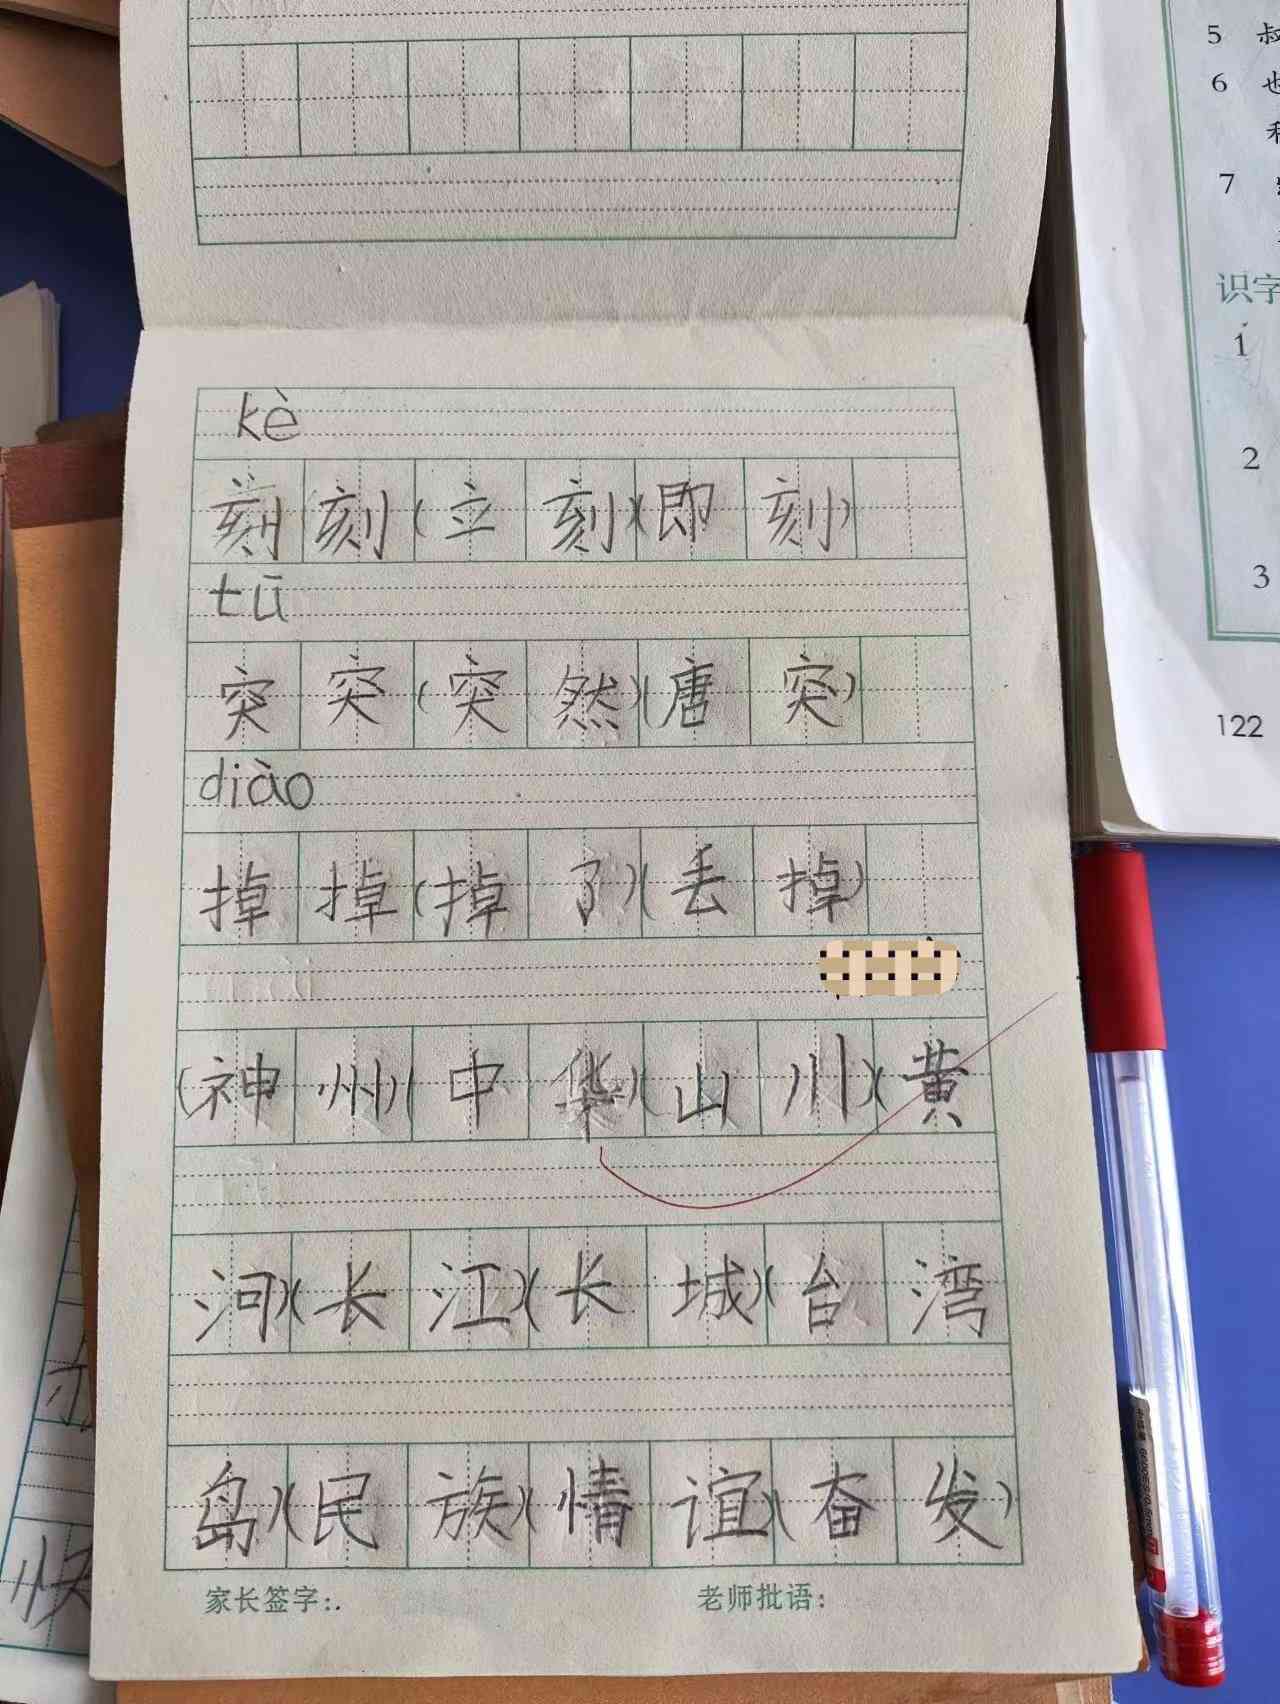 kè
刻刻(立刻)(即刻)
tū
突突(突然)(唐突)
diào
掉掉(掉了)(丢掉)
(神州)(中华)(山川)(黄
河)(长江)(长城)(台湾
岛)(民族)(情谊)(奋发)
家长签字:.
老师批语:
5 叔
6 也
7
识字
1
2
3
122